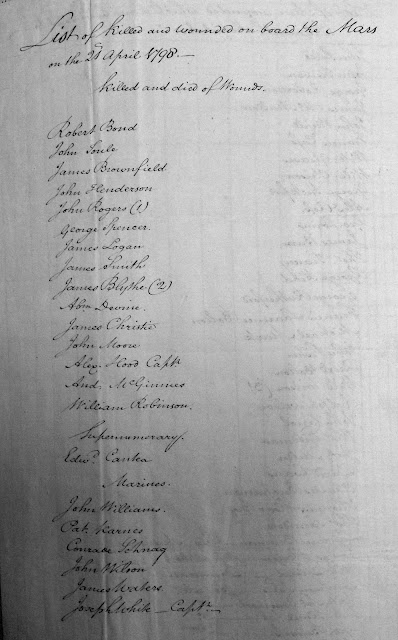 List of killed and wounded on board the Mars
on the 21st April 1798.—
killed and died of Wounds.
Robert Bond
John Soule
James Brownfield
John Henderson
John Rogers (1)
George Spencer.
James Logan
James Smith
James Blythe (2)
Abm. Devine.
James Christie
John Moore
Alex. Hood Captn
And. McGinnies
William Robinson.
Supernumerary.
Edwd. Canten
Marines.
John Williams.
Pat. Karnes
Conrade Schnaq
John Wilson
James Waters
Joseph White — Captn —